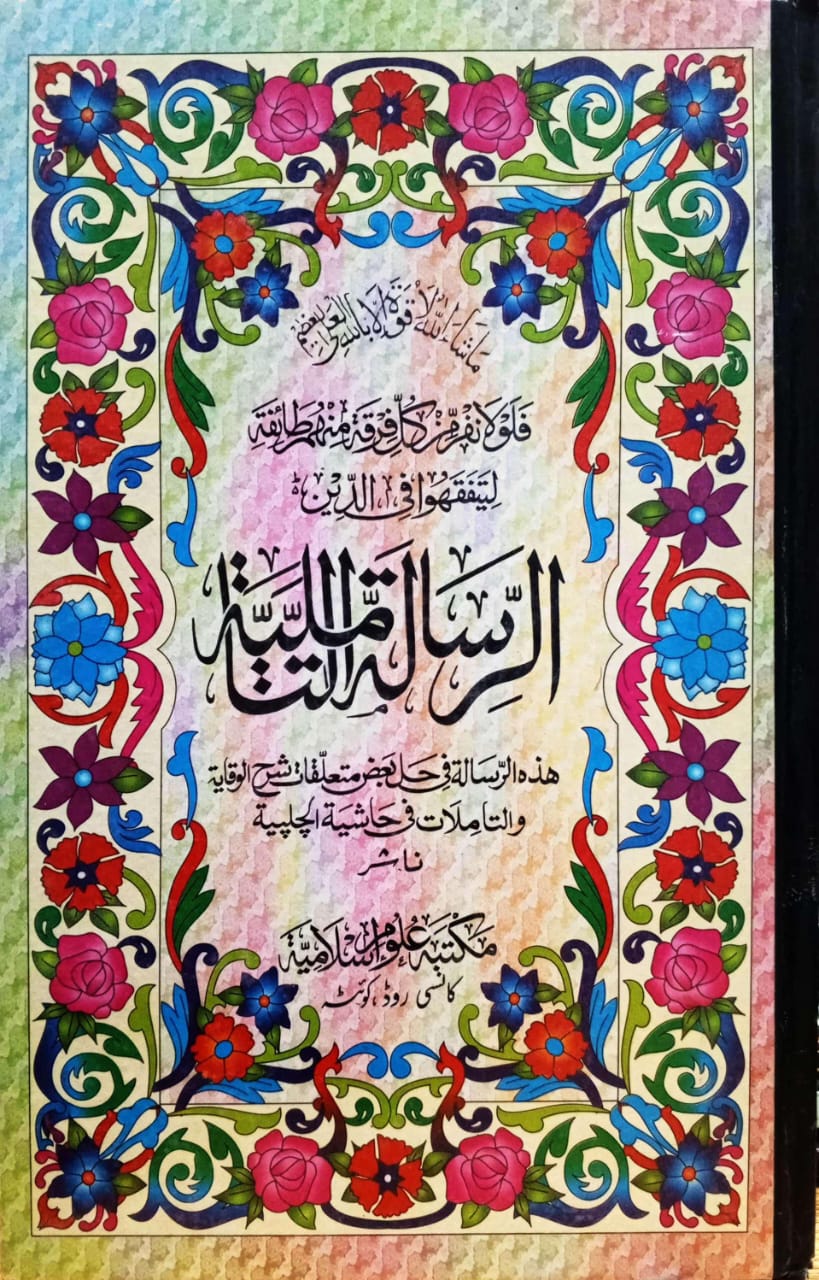 مَا شَاءَ اللّٰهُ لَا قُوَّةَ اِلَّا بِاللّٰهِ الْعَلِيِّ الْعَظِيْمِ
فَلَوْلَا نَفَرَ مِنْ كُلِّ فِرْقَةٍ مِّنْهُمْ طَائِفَةٌ
لِيَتَفَقَّهُوا فِي الدِّيْنِ ؕ
الرِّسَالَةُ التَّأَمُّلِيَّة
هذه الرّسالة فى حل بعض متعلّقات شرح الوقاية
والتاملات فى حاشية الچلپية
ناشر
مکتبہ علوم اسلامیۃ
کانسی روڈ، کوئٹہ